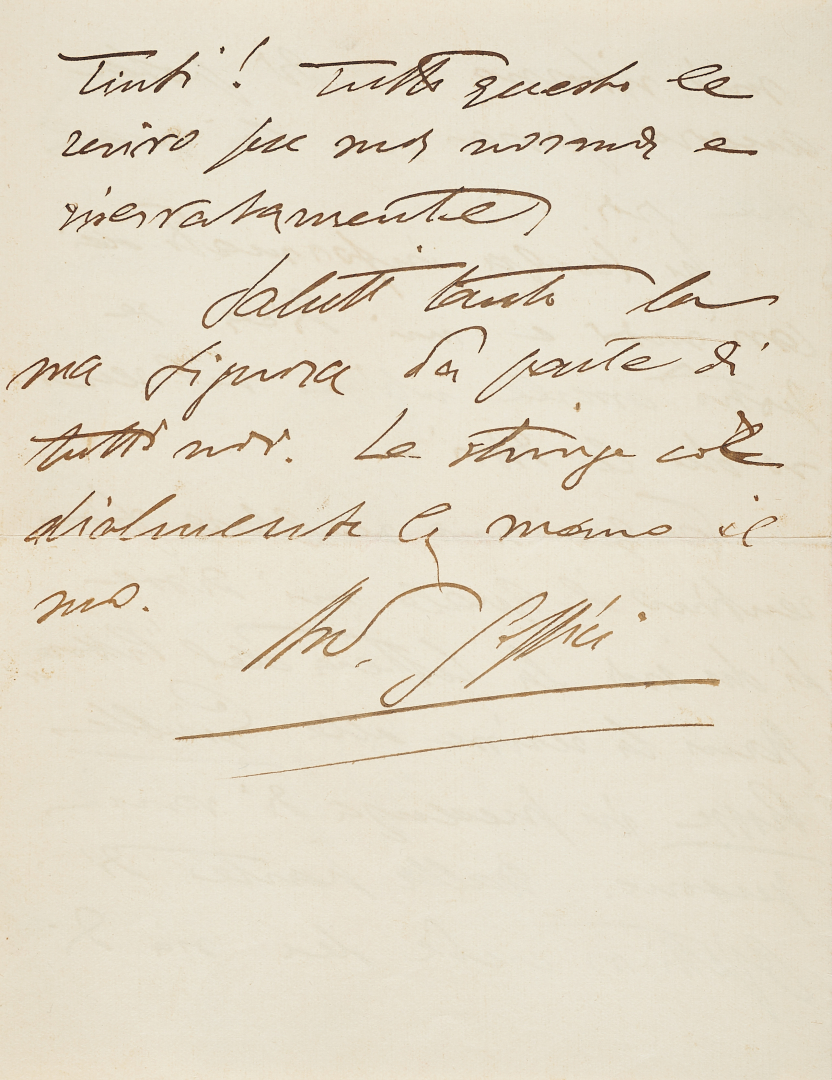 Tinti! Tutto questo le
scrivo per sua norma e
riservatamente
Saluti tanto la
sua Signora da parte di
tutti noi. Le stringe cor
dialmente la mano il
suo.
Ard. Soffici